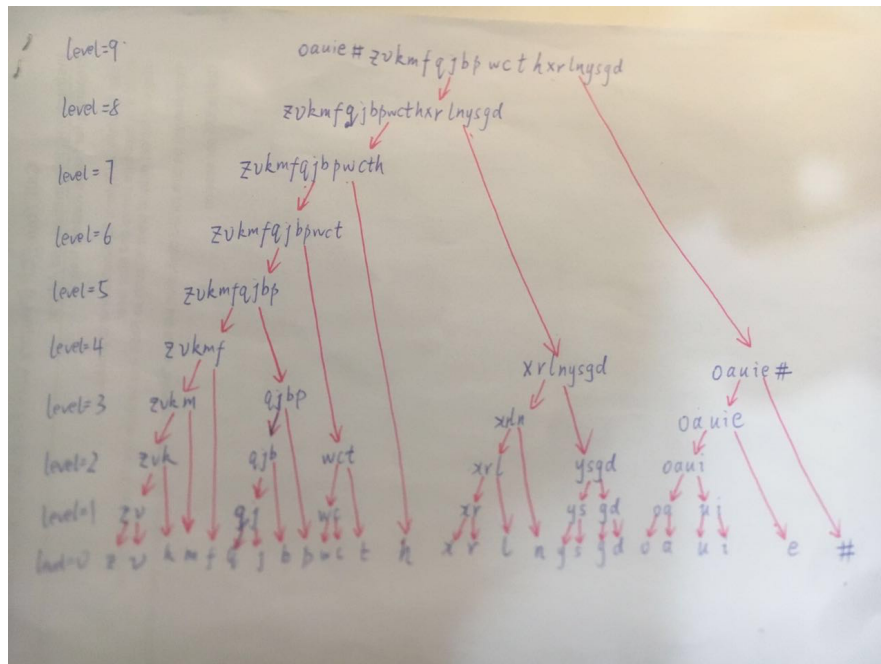 level=9 oauie#zvkmfqjbpwcthxrlnysgd
level=8 zvkmfqjbpwcthxrlnysgd
level=7 zvkmfqjbpwcth
level=6 zvkmfqjbpwct
level=5 zvkmfqjbp
level=4 zvkmf xrlnysgd oauie#
level=3 zvkm qjbp xrln oauie
level=2 zvk qjb wct xrl ysgd oaui
level=1 zv qj wc xr ys gd oa ui
level=0 z v k m f q j b p w c t h x r l n y s g d o a u i e #